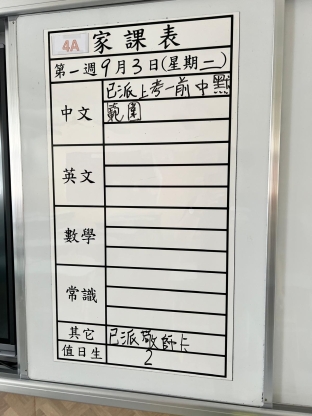 4A 家課表
第一週9月3日(星期二)
中文 已派上考一前中默
範圍
英文
數學
常識
其它 已派敬師卡
值日生 2